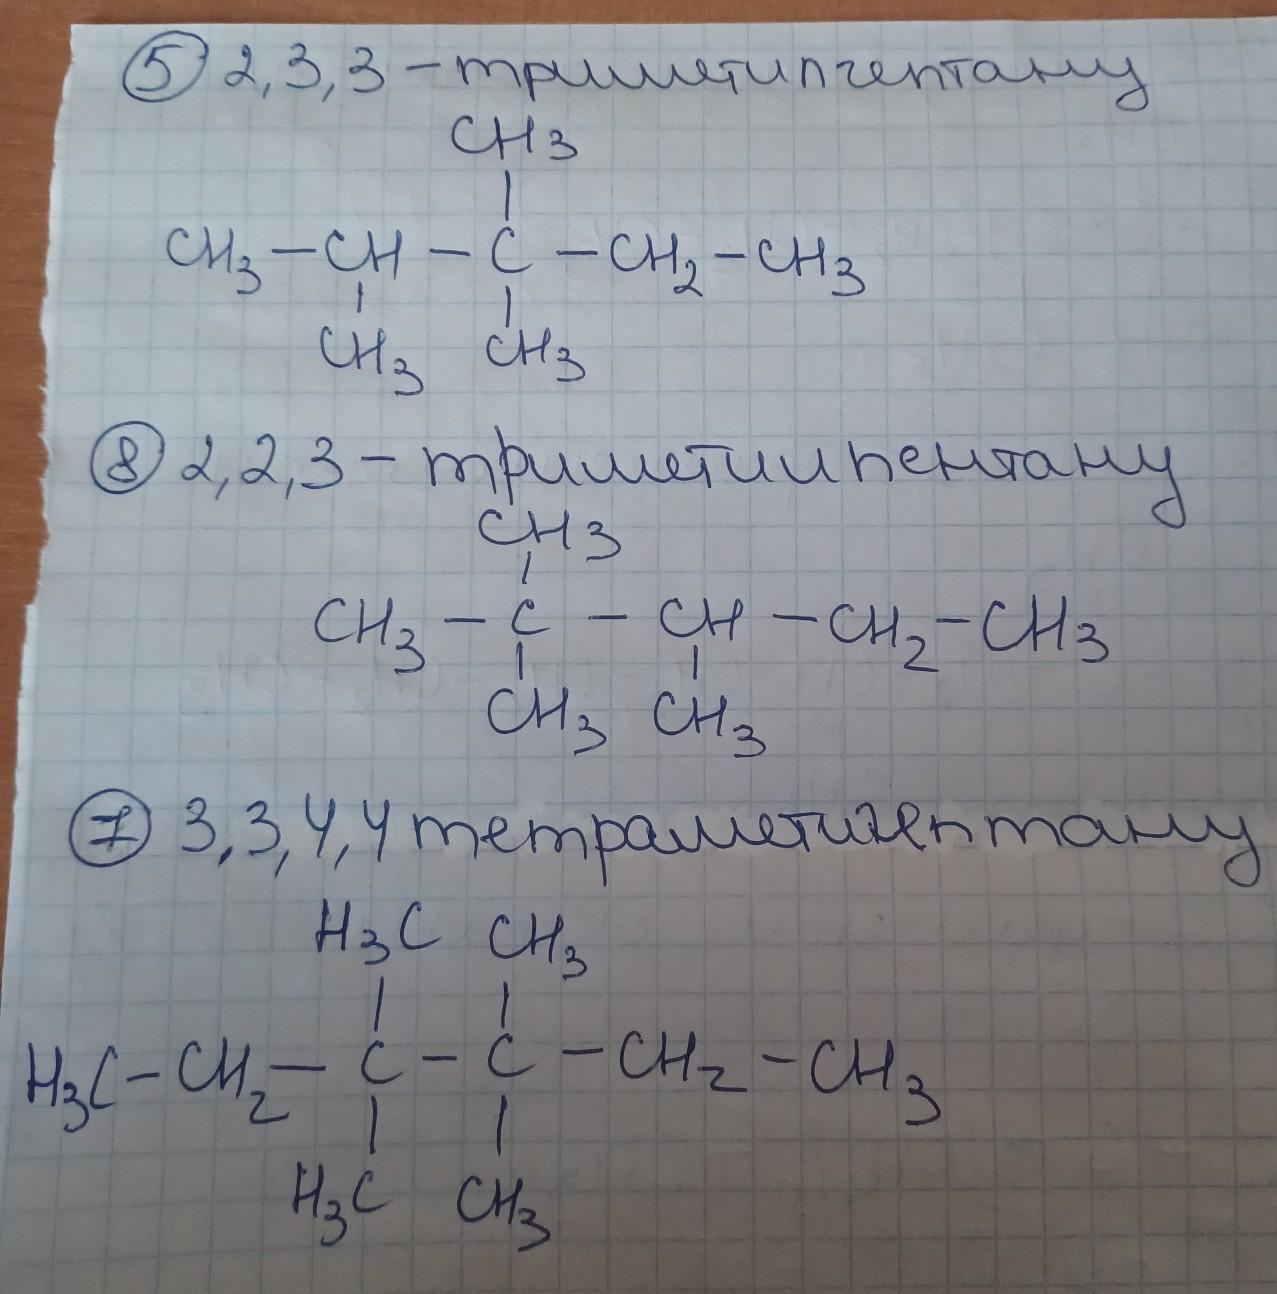 ⑤ 2,3,3 - триметилгептану
CH3
CH3 - CH - C - CH2 - CH3
CH3 CH3
⑧ 2,2,3 - триметилпентану
CH3
CH3 - C - CH - CH2 - CH3
CH3 CH3
⑦ 3,3,4,4 тетраметигептану
H3C CH3
H3C - CH2 - C - C - CH2 - CH3
H3C CH3